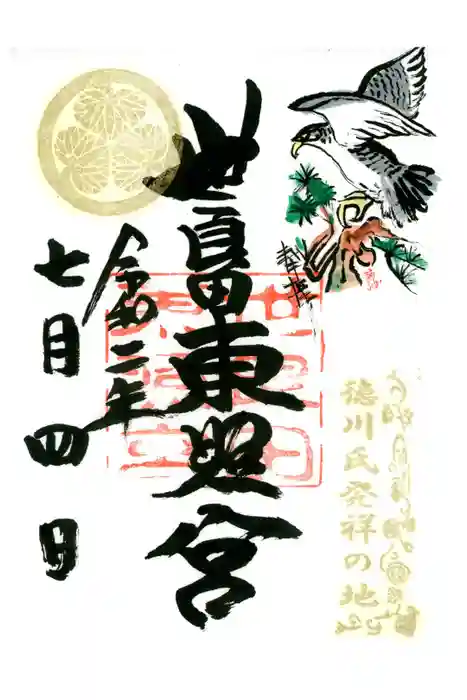 奉拝
世良田東照宮
令和二年
七月四日
徳川氏発祥の地